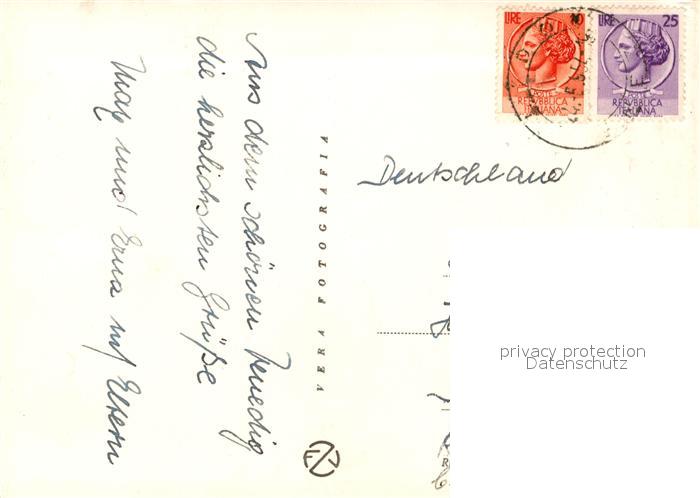 Aus dem schönen Venedig
die herzlichsten Grüße
May und Erna mit Eltern
VERA FOTOGRAFIA
LIRE 10
POSTE
REPVBBLICA
ITALIANA
LIRE 25
POSTE
REPVBBLICA
ITALIANA
Deutschland
privacy protection
Datenschutz